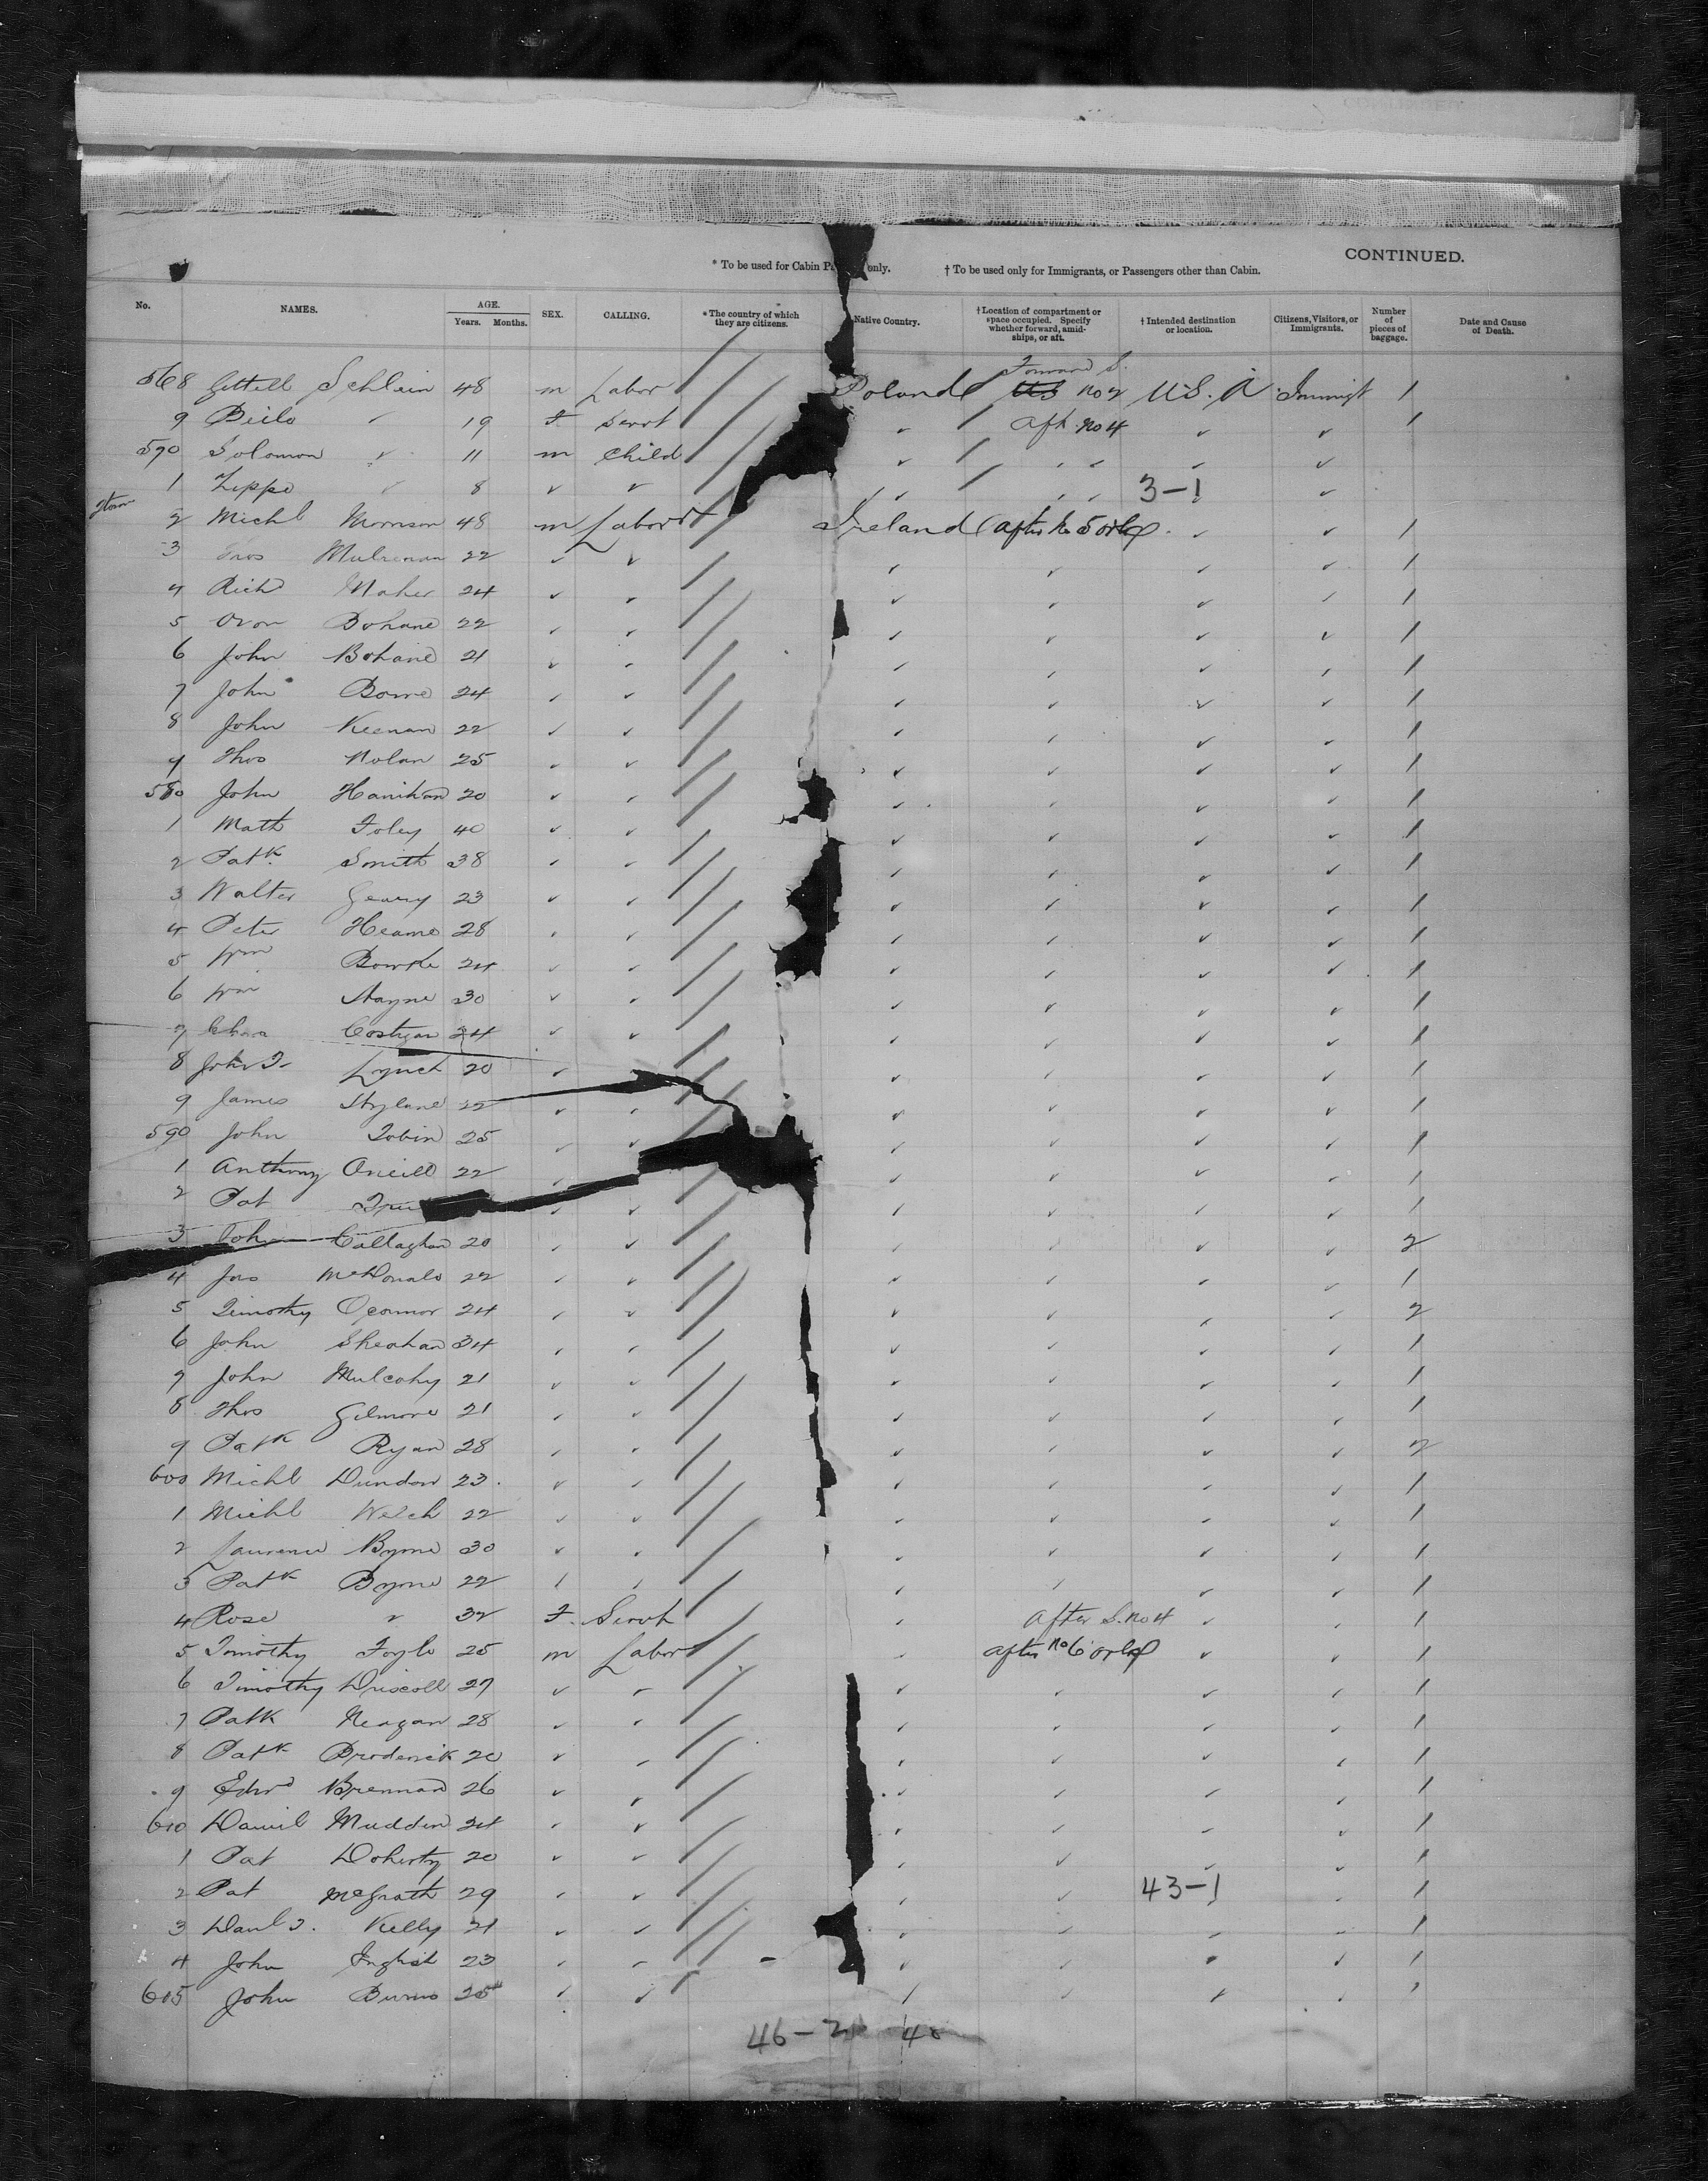 CONTINUED.
* To be used for Cabin Pa only. † To be used only for Immigrants, or Passengers other than Cabin.
No. NAMES. AGE. Years. Months. SEX. CALLING. * The country of which they are citizens. Native Country. † Location of compartment or space occupied. Specify whether forward, amidships, or aft. † Intended destination or location. Citizens, Visitors, or Immigrants. Number of pieces of baggage. Date and Cause of Death.
Forward S.
568 Schlein 48 m Labor Poland no 2 U.S.A Immigt 1
9 19 F Servt ✓ aft no 4 ✓ ✓ 1
590 Solomon ✓ 11 m Child ✓ ✓ ✓ ✓ ✓
1 ✓ 8 ✓ ✓ ✓ ✓ ✓ 3-1 ✓
2 Michl Morrison 48 m Labor Ireland after no 5 orlop ✓ ✓ 1
3 Thos 22 ✓ ✓ ✓ ✓ ✓ ✓ 1
4 Richd Maher 24 ✓ ✓ ✓ ✓ ✓ ✓ 1
5 Bohane 22 ✓ ✓ ✓ ✓ ✓ ✓ 1
6 John Bohane 21 ✓ ✓ ✓ ✓ ✓ ✓ 1
7 John 24 ✓ ✓ ✓ ✓ ✓ ✓ 1
8 John Keenan 22 ✓ ✓ ✓ ✓ ✓ ✓ 1
9 Thos Nolan 25 ✓ ✓ ✓ ✓ ✓ ✓ 1
580 John Hanihan 20 ✓ ✓ ✓ ✓ ✓ ✓ 1
1 Math Foley 40 ✓ ✓ ✓ ✓ ✓ ✓ 1
2 Patk Smith 38 ✓ ✓ ✓ ✓ ✓ ✓ 1
3 Walter Geary 23 ✓ ✓ ✓ ✓ ✓ ✓ 1
4 Peter Hearne 28 ✓ ✓ ✓ ✓ ✓ ✓ 1
5 Wm Bourke 24 ✓ ✓ ✓ ✓ ✓ ✓ 1
6 Wm 30 ✓ ✓ ✓ ✓ ✓ ✓ 1
7 Costigan 24 ✓ ✓ ✓ ✓ ✓ ✓ 1
8 John Lynch 20 ✓ ✓ ✓ ✓ ✓ 1
9 James 22 ✓ ✓ ✓ ✓ ✓ ✓ 1
590 John Tobin 25 ✓ ✓ ✓ ✓ ✓ ✓ 1
1 Anthony Oneill 22 ✓ ✓ ✓ ✓ ✓ 1
2 Pat ✓ ✓ ✓ ✓ ✓ ✓ 1
3 Joh Callaghan 20 ✓ ✓ ✓ ✓ ✓ ✓ 2
4 Jas McDonald 22 ✓ ✓ ✓ ✓ ✓ ✓ 1
5 Timothy Oconnor 24 ✓ ✓ ✓ ✓ ✓ ✓ 2
6 John Sheahan 34 ✓ ✓ ✓ ✓ ✓ ✓ 1
7 John Mulcahy 21 ✓ ✓ ✓ ✓ ✓ ✓ 1
8 Thos Gilmore 21 ✓ ✓ ✓ ✓ ✓ ✓ 1
9 Patk Ryan 28 ✓ ✓ ✓ ✓ ✓ ✓ 2
600 Michl Dundon 23 ✓ ✓ ✓ ✓ ✓ ✓ 1
1 Michl Welch 22 ✓ ✓ ✓ ✓ ✓ ✓ 1
2 Laurence Byrne 30 ✓ ✓ ✓ ✓ ✓ ✓ 1
3 Patk Byrne 22 ✓ ✓ ✓ ✓ ✓ ✓ 1
4 Rose ✓ 32 F. Servt ✓ after S. no 4 ✓ ✓ 1
5 Timothy 25 m Labor ✓ after no 6 orlop ✓ ✓ 1
6 Timothy Driscoll 27 ✓ ✓ ✓ ✓ ✓ ✓ 1
7 Patk Neagan 28 ✓ ✓ ✓ ✓ ✓ ✓ 1
8 Patk Broderick 20 ✓ ✓ ✓ ✓ ✓ ✓ 1
9 Edwd Brennan 26 ✓ ✓ ✓ ✓ ✓ ✓ 1
610 Daniel Madden 24 ✓ ✓ ✓ ✓ ✓ ✓ 1
1 Pat Doherty 20 ✓ ✓ ✓ ✓ ✓ ✓ 1
2 Pat McGrath 29 ✓ ✓ ✓ ✓ 43-1 ✓ 1
3 Danl J. Kelly 21 ✓ ✓ ✓ ✓ ✓ ✓ 1
4 John English 23 ✓ ✓ ✓ ✓ ✓ ✓ 1
615 John Burns 25 ✓ ✓ ✓ ✓ ✓ ✓ 1
46-2